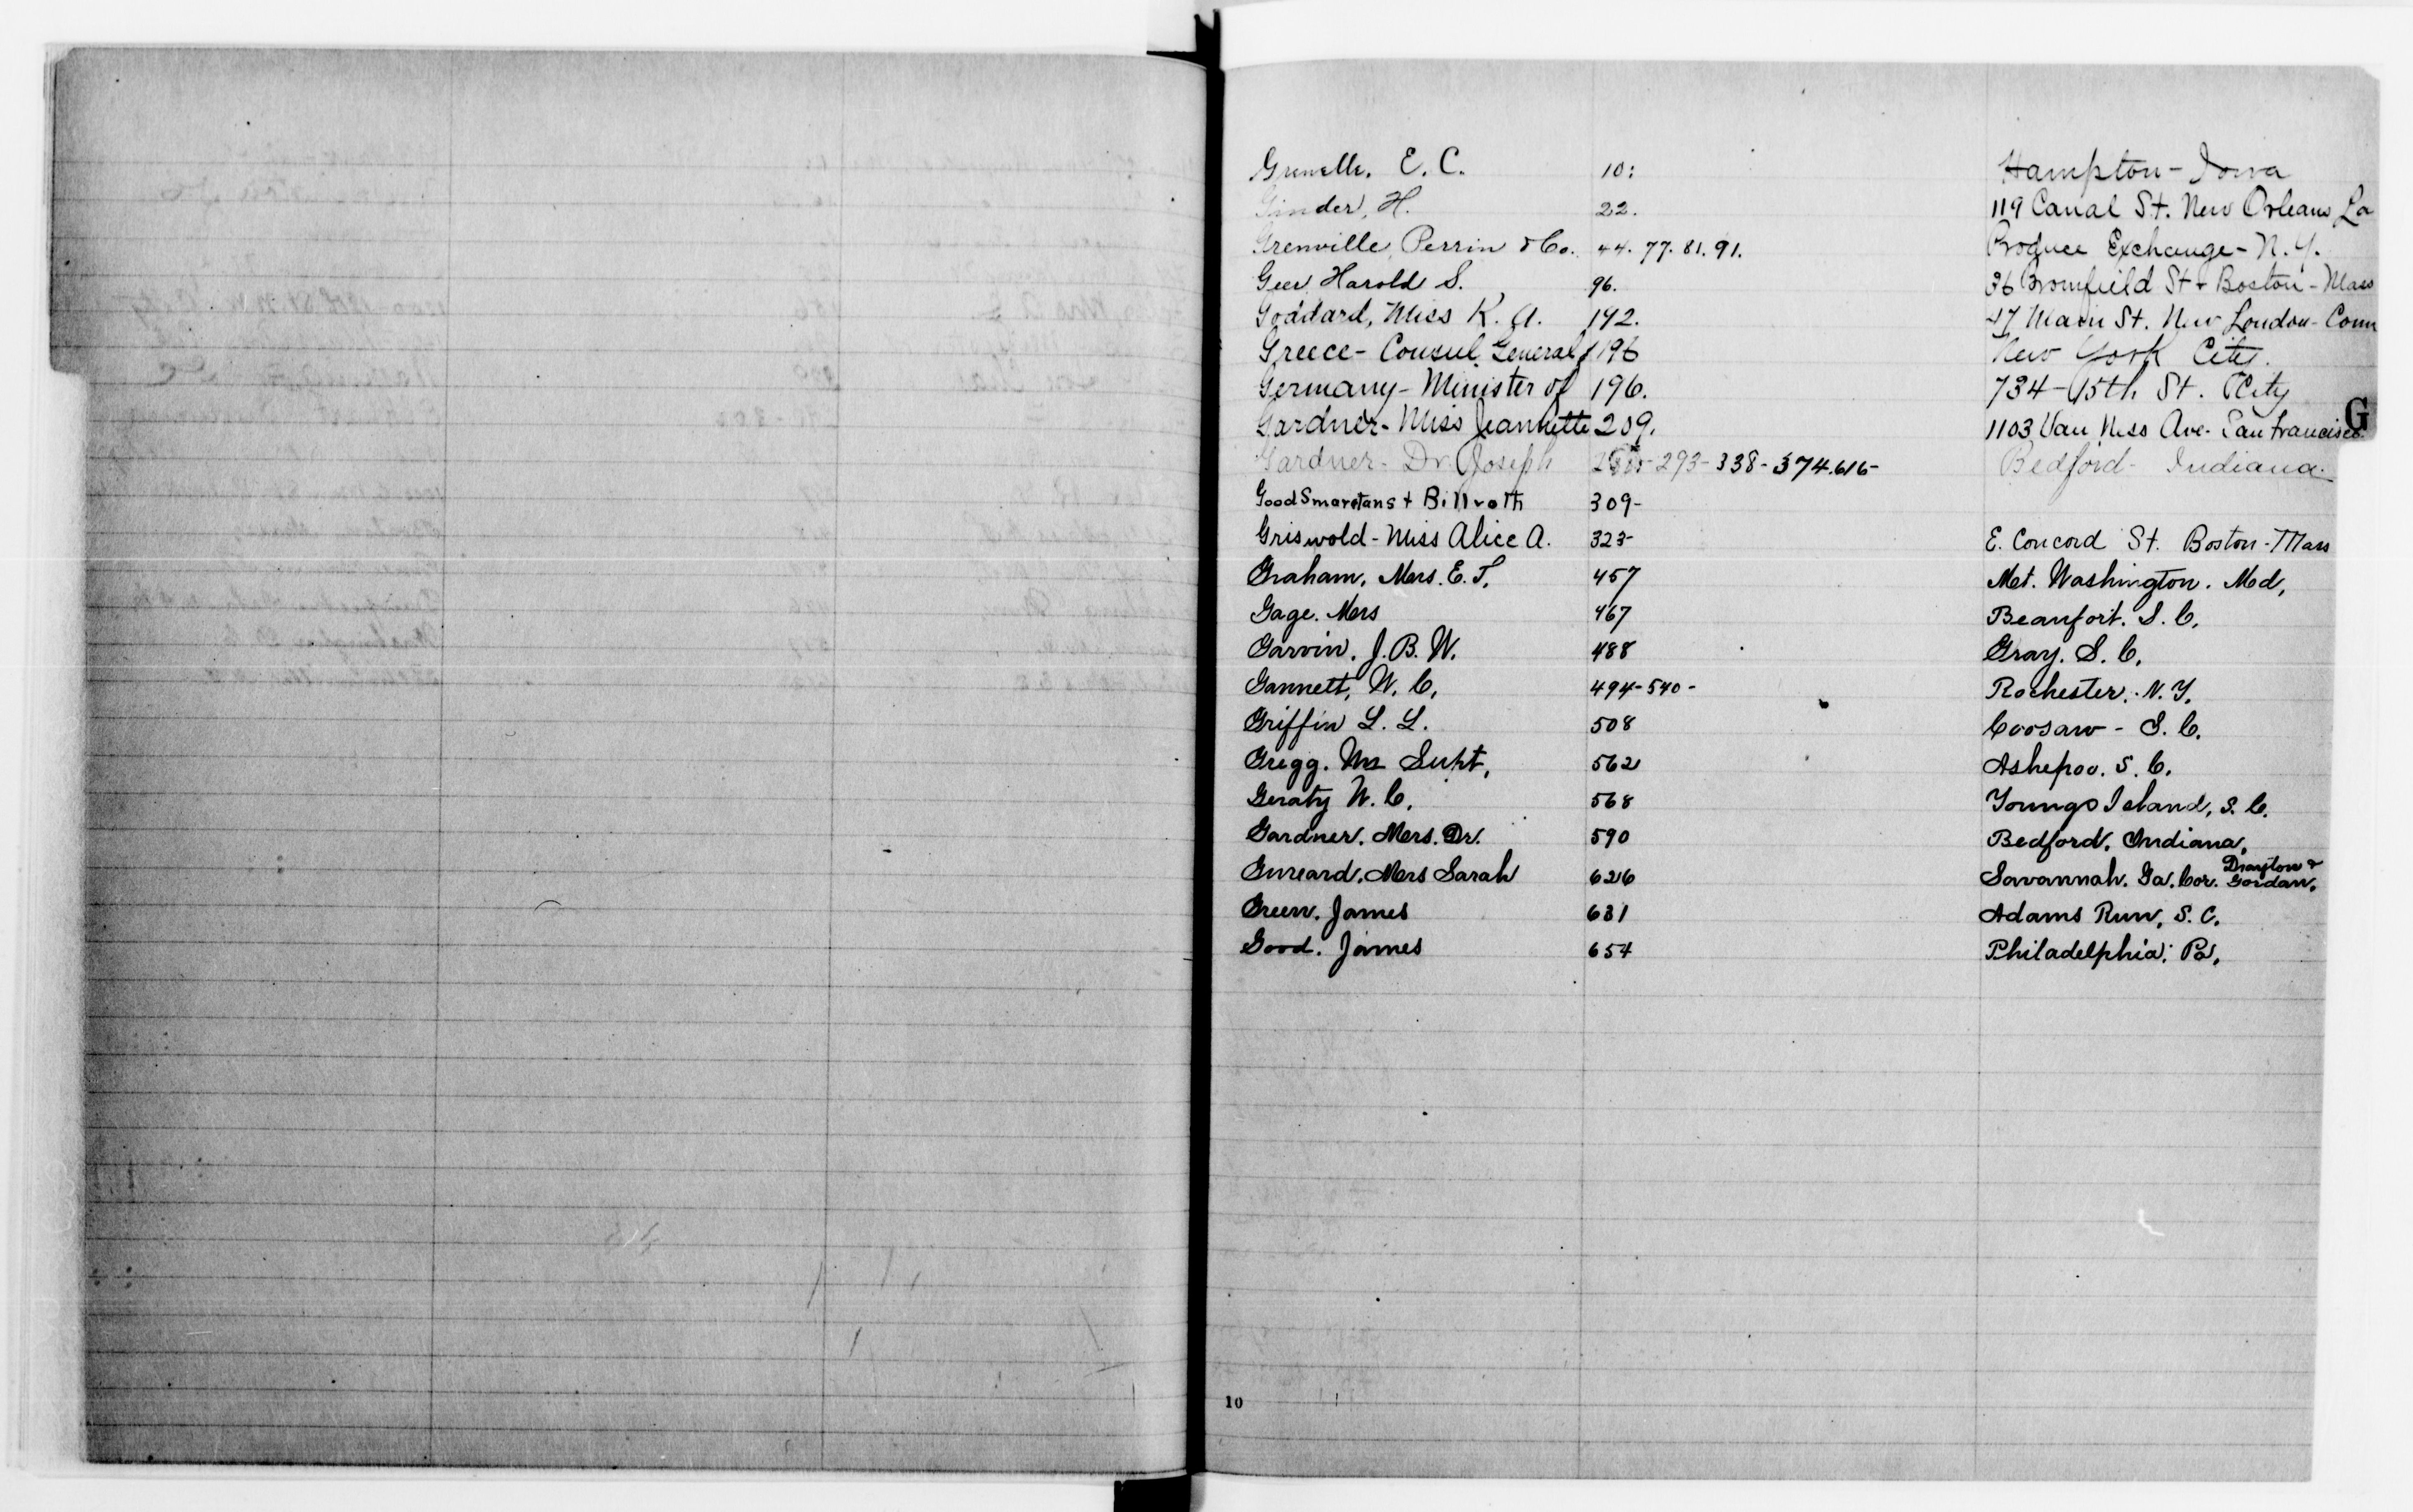 Grenelle, E. C. 10: Hampton - Iowa
Ginder, H. 22. 119 Canal St. New Orleans La
Grenville, Perrin & Co. 44. 77. 81. 91. Produce Exchange - N. Y.
Geer Harold S. 96. 36 Bromfield St - Boston - Mass
Goddard, Miss K. A. 142. 47 Main St. New London - Conn
Greece - Consul General of 196 New York City.
Germany - Minister of 196. 734 - 15th St. City
G
Gardner - Miss Jeannette 209. 1103 Van Ness Ave. San Francisco
Gardner - Dr Joseph 293 - 338 - 374. 616 - Bedford - Indiana.
Good Smaretans + Billroth 309 -
Griswold - Miss Alice A. 323 - E. Concord St. Boston - Mass
Graham, Mers. E. T. 457 Met. Washington. Md,
Gage. Mers 467 Beaufort. S. C,
Garvin, J. B. W. 488 Gray. S. C,
Gannett, W. C, 494 - 540 - Rochester. N. Y,
Griffin L. L. 508 Coosaw - S. C.
Gregg. Supt, 562 Ashepoo. S. C.
Geraty W. C, 568 Youngs Island, S. C.
Gardner. Mers. Dr. 590 Bedford. Indiana,
Mers Sarah 626 Savannah. Ga. Cor. Drayton & Gordan.
Green. James 631 Adams Run, S. C.
Good. James 654 Philadelphia. Pa,
10